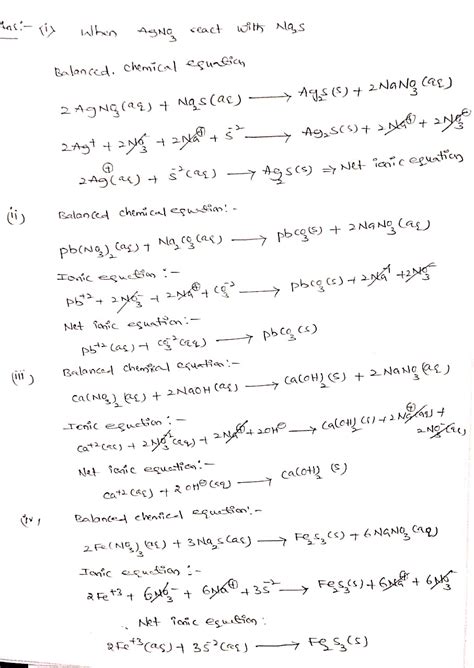 Ans:- (i) When AgNO₃ react with Na₂S
Balanced. chemical equation
2AgNO₃(aq) + Na₂S(aq) ⟶ Ag₂S(s) + 2NaNO₃(aq)
2Ag⁺ + 2NO₃⁻ + 2Na⊕ + S⁻² ⟶ Ag₂S(s) + 2Na⊕ + 2NO₃⊖
2Ag⊕(aq) + S⁻²(aq) ⟶ Ag₂S(s) ⇒ Net ionic equation
(ii) Balanced chemical equation:-
pb(NO₃)₂(aq) + Na₂CO₃(aq) ⟶ pbCO₃(s) + 2NaNO₃(aq)
Ionic equation:-
pb⁺² + 2NO₃⁻ + 2Na⊕ + CO₃⁻² ⟶ pbCO₃(s) + 2Na⁺ + 2NO₃⁻
Net ionic equation:-
pb⁺²(aq) + CO₃⁻²(aq) ⟶ pbCO₃(s)
(iii) Balanced chemical equation:-
Ca(NO₃)₂(aq) + 2NaOH(aq) ⟶ Ca(OH)₂(s) + 2NaNO₃(aq)
Ionic equation:-
Ca⁺²(aq) + 2NO₃⁻(aq) + 2Na⊕ + 2OH⊖ ⟶ Ca(OH)₂(s) + 2Na⊕(aq) +
2NO₃⁻(aq)
Net ionic equation:-
Ca⁺²(aq) + 2OH⊖(aq) ⟶ Ca(OH)₂(s)
(iv) Balanced chemical equation:-
2Fe(NO₃)₃(aq) + 3Na₂S(aq) ⟶ Fe₂S₃(s) + 6NaNO₃(aq)
Ionic equation:-
2Fe⁺³ + 6NO₃⁻ + 6Na⊕ + 3S⁻² ⟶ Fe₂S₃(s) + 6Na⊕ + 6NO₃⁻
Net ionic equation:
2Fe⁺³(aq) + 3S²⁻(aq) ⟶ Fe₂S₃(s)